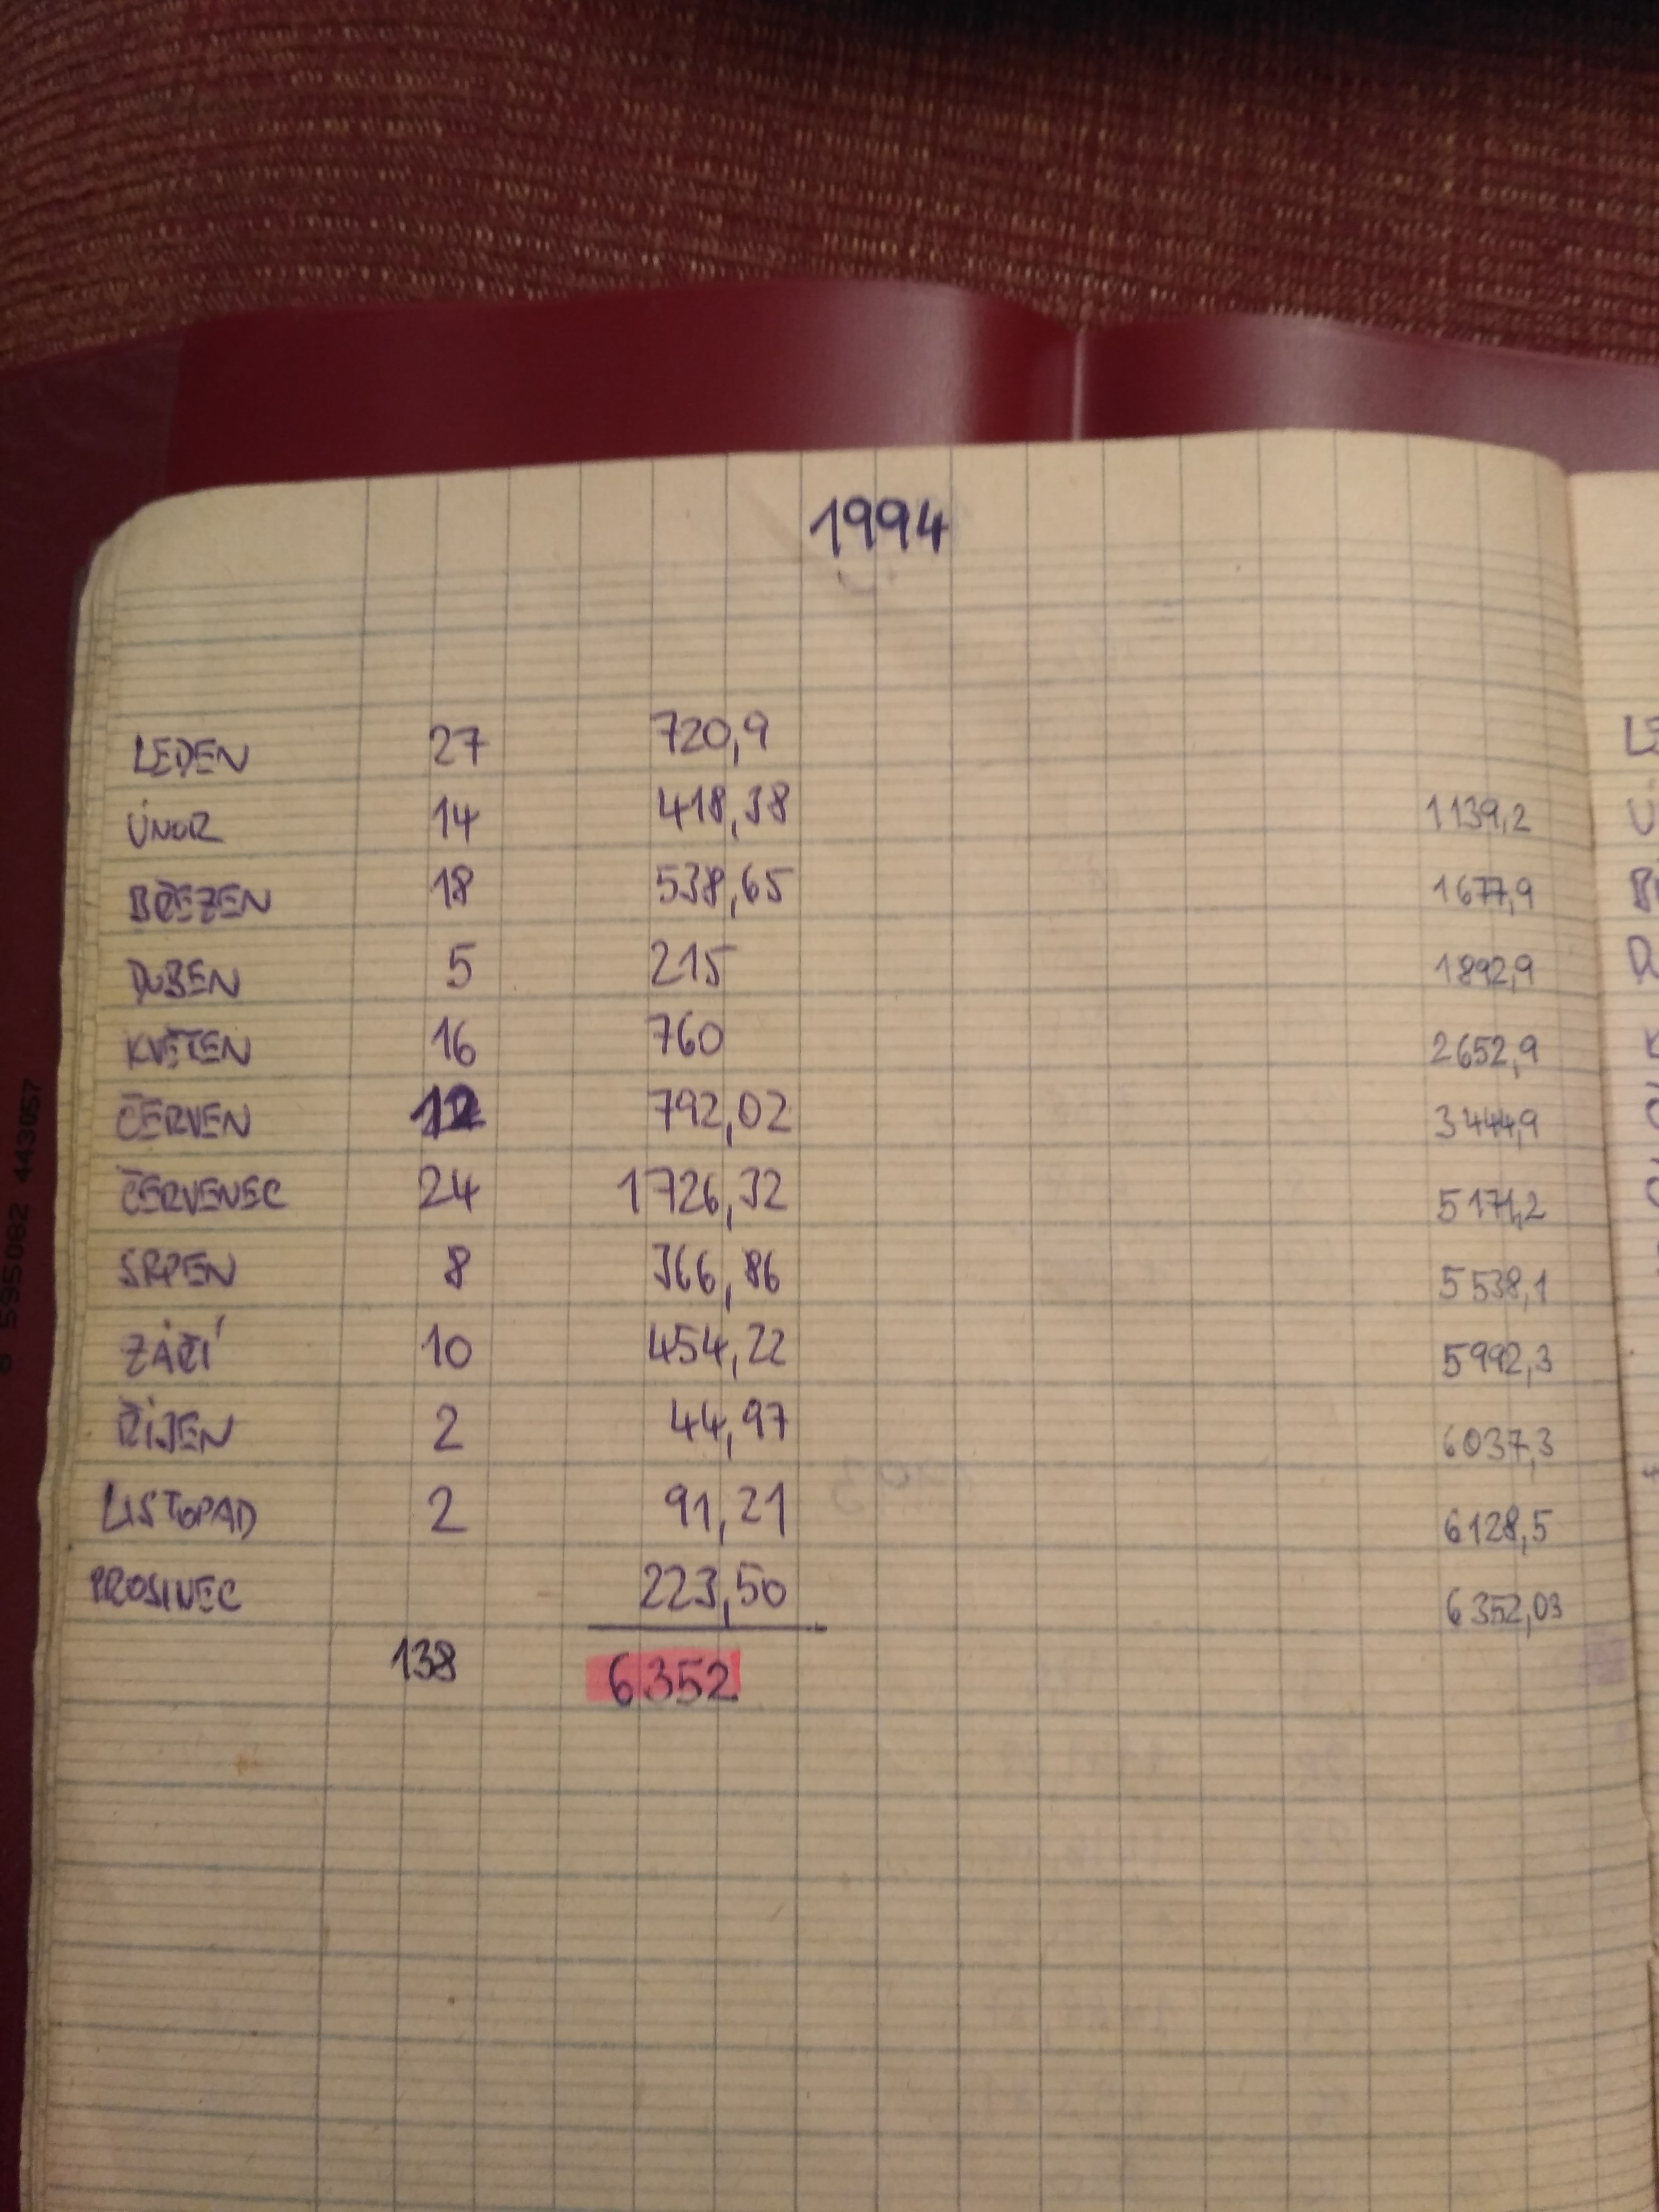 1994
LEDEN 27 720,9
ÚNOR 14 418,38 1139,2
BŘEZEN 18 538,65 1677,9
DUBEN 5 215 1892,9
KVĚTEN 16 760 2652,9
ČERVEN 12 792,02 3444,9
ČERVENEC 24 1726,32 5171,2
SRPEN 8 366,86 5538,1
ZÁŘÍ 10 454,22 5992,3
ŘÍJEN 2 44,97 6037,3
LISTOPAD 2 91,21 6128,5
PROSINEC 223,50 6352,03
138 6352